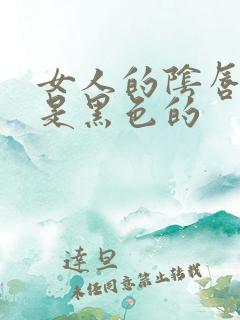 女人的陰唇
是黑色的
達旦
未经同意禁止转载